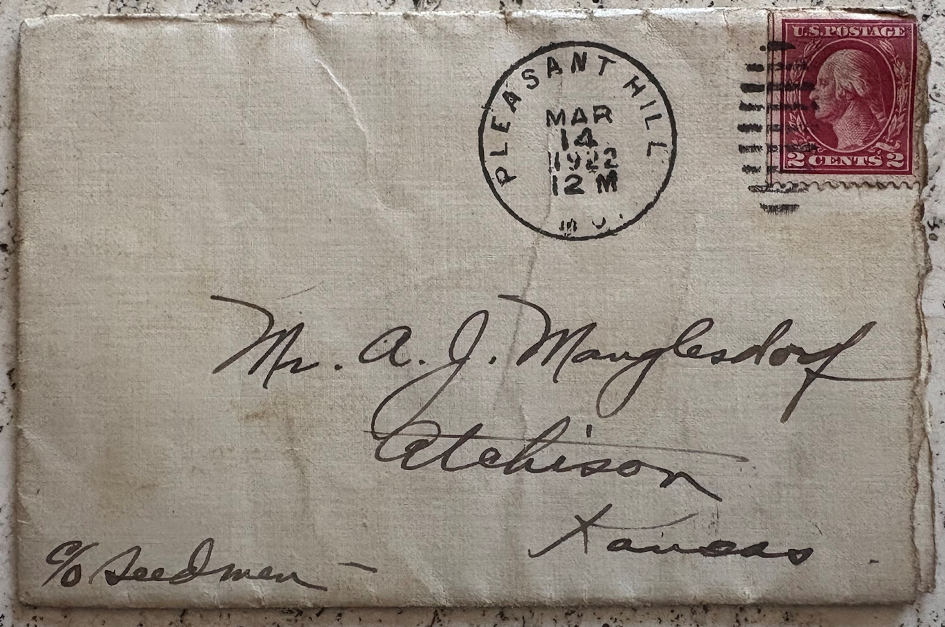 PLEASANT HILL
MAR
14
1922
12 M
MO.
U.S. POSTAGE
2 CENTS 2
Mr. A. J. Manglesdorf
Atchison
Kansas.
c/o Seedmen -